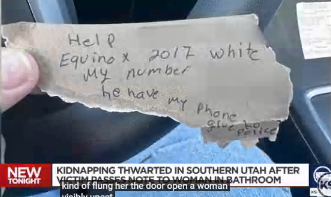 Help
Equinox 2017 white
My number
he have my phone
give to
Police
NEW
TONIGHT
KIDNAPPING THWARTED IN SOUTHERN UTAH AFTER
VICTIM PASSES NOTE TO WOMAN IN BATHROOM
kind of flung her the door open a woman
visibly upset
KS